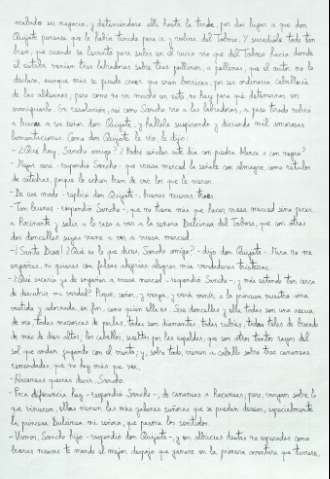 acabado su negocio, y deteniéndose allí hasta la tarde, por dar lugar a que don
Quijote pensase que le había tenido para ir y volver del Toboso. Y sucedióle todo tan
bien, que cuando se levantó para subir en el rucio vio que del Toboso hacia donde
él estaba venían tres labradoras sobre tres pollinos, o pollinas, que el autor no lo
declara, aunque más se puede creer que eran borricas, por ser ordinaria caballería
de las aldeanas; pero como no va mucho en esto, no hay para qué detenernos en
averiguarlo. En resolución, así como Sancho vio a las labradoras, a paso tirado volvió
a buscar a su señor don Quijote, y hallóle suspirando y diciendo mil amorosas
lamentaciones. Como don Quijote le vio, le dijo:
- ¿Qué hay, Sancho amigo? ¿Podré señalar este día con piedra blanca o con negra?
- Mejor será - respondió Sancho - que vuesa merced la señale con almagre, como rétulos
de cátedras, porque le echen bien de ver los que le vieren.
- De ese modo - replicó don Quijote -, buenas nuevas traes.
- Tan buenas - respondió Sancho -, que no tiene más que hacer vuesa merced sino picar
a Rocinante y salir a lo raso a ver a la señora Dulcinea del Toboso, que con otras
dos doncellas suyas viene a ver a vuesa merced.
- ¡Santo Dios! ¿Qué es lo que dices, Sancho amigo? - dijo don Quijote -. Mira no me
engañes, ni quieras con falsas alegrías alegrar mis verdaderas tristezas.
- ¿Qué sacaría yo de engañar a vuesa merced - respondió Sancho -, y más estando tan cerca
de descubrir mi verdad? Pique, señor, y venga, y verá venir a la princesa nuestra ama
vestida y adornada, en fin, como quien ella es. Sus doncellas y ella todas son una ascua
de oro, todas mazorcas de perlas, todas son diamantes, todas rubíes, todas telas de brocado
de más de diez altos; los cabellos, sueltos por las espaldas, que son otros tantos rayos del
sol que andan jugando con el viento; y, sobre todo, vienen a caballo sobre tres cananeas
remendadas, que no hay más que ver.
- Hacaneas querrás decir, Sancho.
- Poca diferencia hay - respondió Sancho -, de cananeas a hacaneas; pero, vengan sobre lo
que vinieren, ellas vienen las más galanas señoras que se puedan desear, especialmente
la princesa Dulcinea mi señora, que pasma los sentidos.
- Vamos, Sancho hijo - respondió don Quijote -, y en albricias destas no esperadas como
buenas nuevas te mando el mejor despojo que ganare en la primera aventura que tuviere,